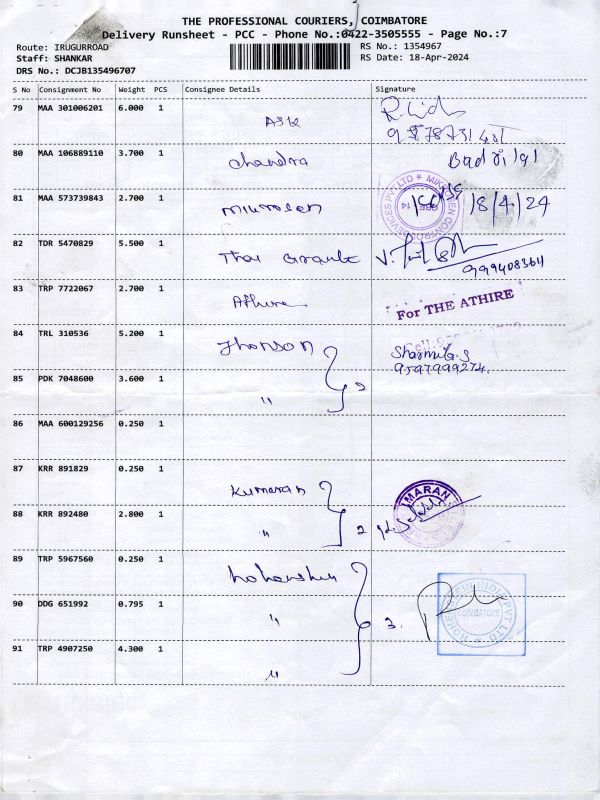 THE PROFESSIONAL COURIERS, COIMBATORE
Delivery Runsheet - PCC - Phone No.:0422-3505555 - Page No.:7
Route: IRUGURROAD RS No.: 1354967
Staff: SHANKAR RS Date: 18-Apr-2024
DRS No.: DCJB135496707
S No Consignment No Weight PCS Consignee Details Signature
79 MAA 301006201 6.000 1
80 MAA 106889110 3.700 1 Chandra
81 MAA 573739843 2.700 1 18/4/24
82 TDR 5470829 5.500 1
83 TRP 7722067 2.700 1 For THE ATHIRE
84 TRL 310536 5.200 1 Jhonson Sharmila.S
9597999274.
85 PDK 7048600 3.600 1 " 2
86 MAA 600129256 0.250 1
87 KRR 891829 0.250 1 Kumaran
MARAN
88 KRR 892480 2.800 1 " 2
89 TRP 5967560 0.250 1
90 DDG 651992 0.795 1 " 3. COIMBATORE
91 TRP 4907250 4.300 1 "